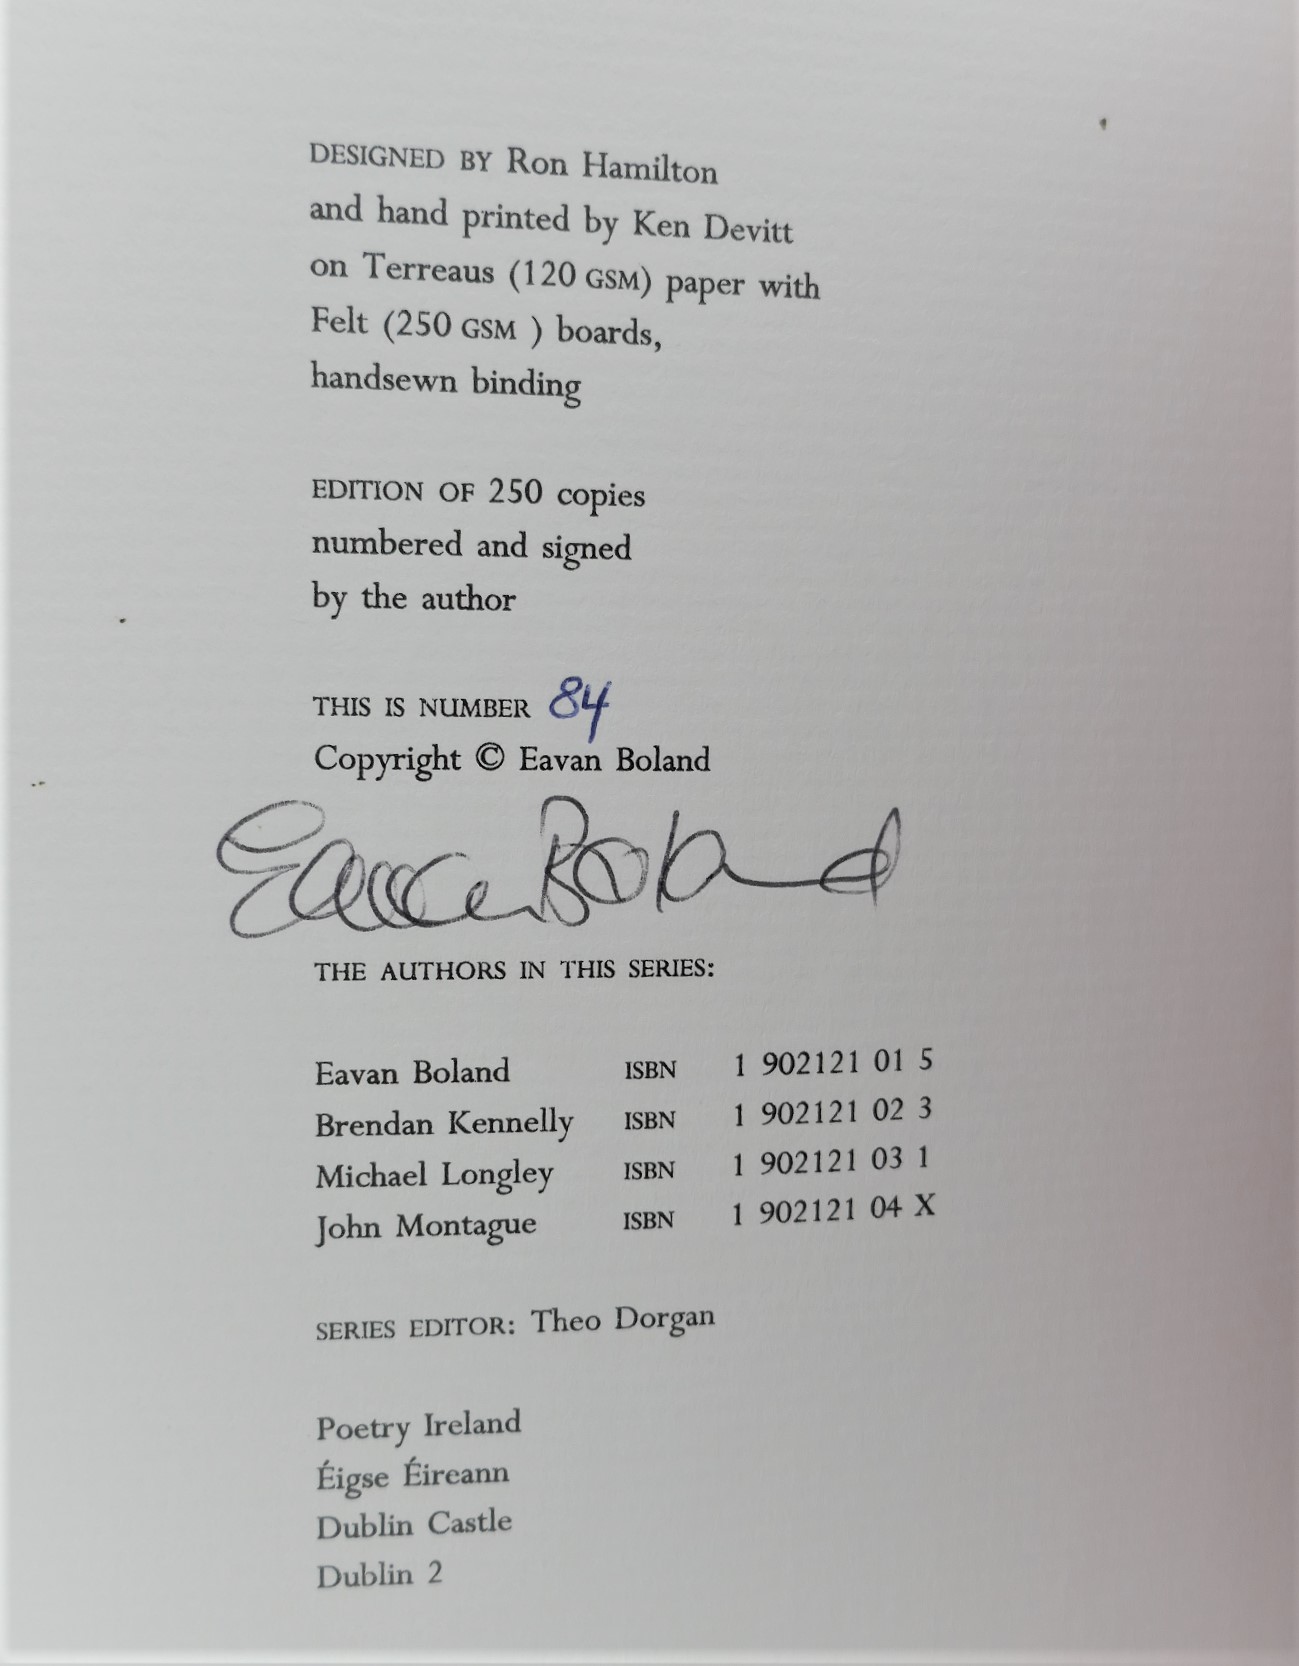 DESIGNED BY Ron Hamilton
and hand printed by Ken Devitt
on Terreaus (120 GSM) paper with
Felt (250 GSM ) boards,
handsewn binding
EDITION OF 250 copies
numbered and signed
by the author
THIS IS NUMBER 84
Copyright © Eavan Boland
Eavan Boland
THE AUTHORS IN THIS SERIES:
Eavan Boland ISBN 1 902121 01 5
Brendan Kennelly ISBN 1 902121 02 3
Michael Longley ISBN 1 902121 03 1
John Montague ISBN 1 902121 04 X
SERIES EDITOR: Theo Dorgan
Poetry Ireland
Éigse Éireann
Dublin Castle
Dublin 2